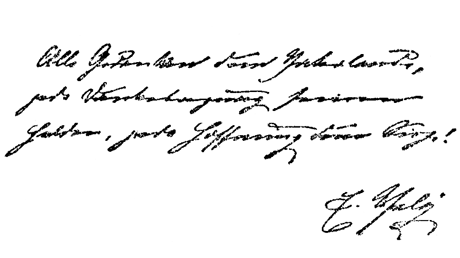 Alle Gedanken dem Vaterlande,
jede Dankesregung seinen
Helden, jede Hoffnung dem Sieg!
E. Vely